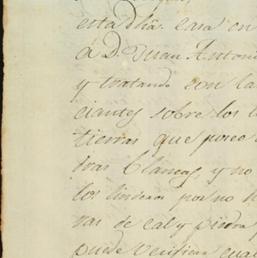 esta dha. Casa en
a D. Juan Antoni
y tratando con la
ciantes sobre los l
tierras que posee
tras Blancas, y no
los linderos por no h
ras de cal y piedra
puede verificar cual